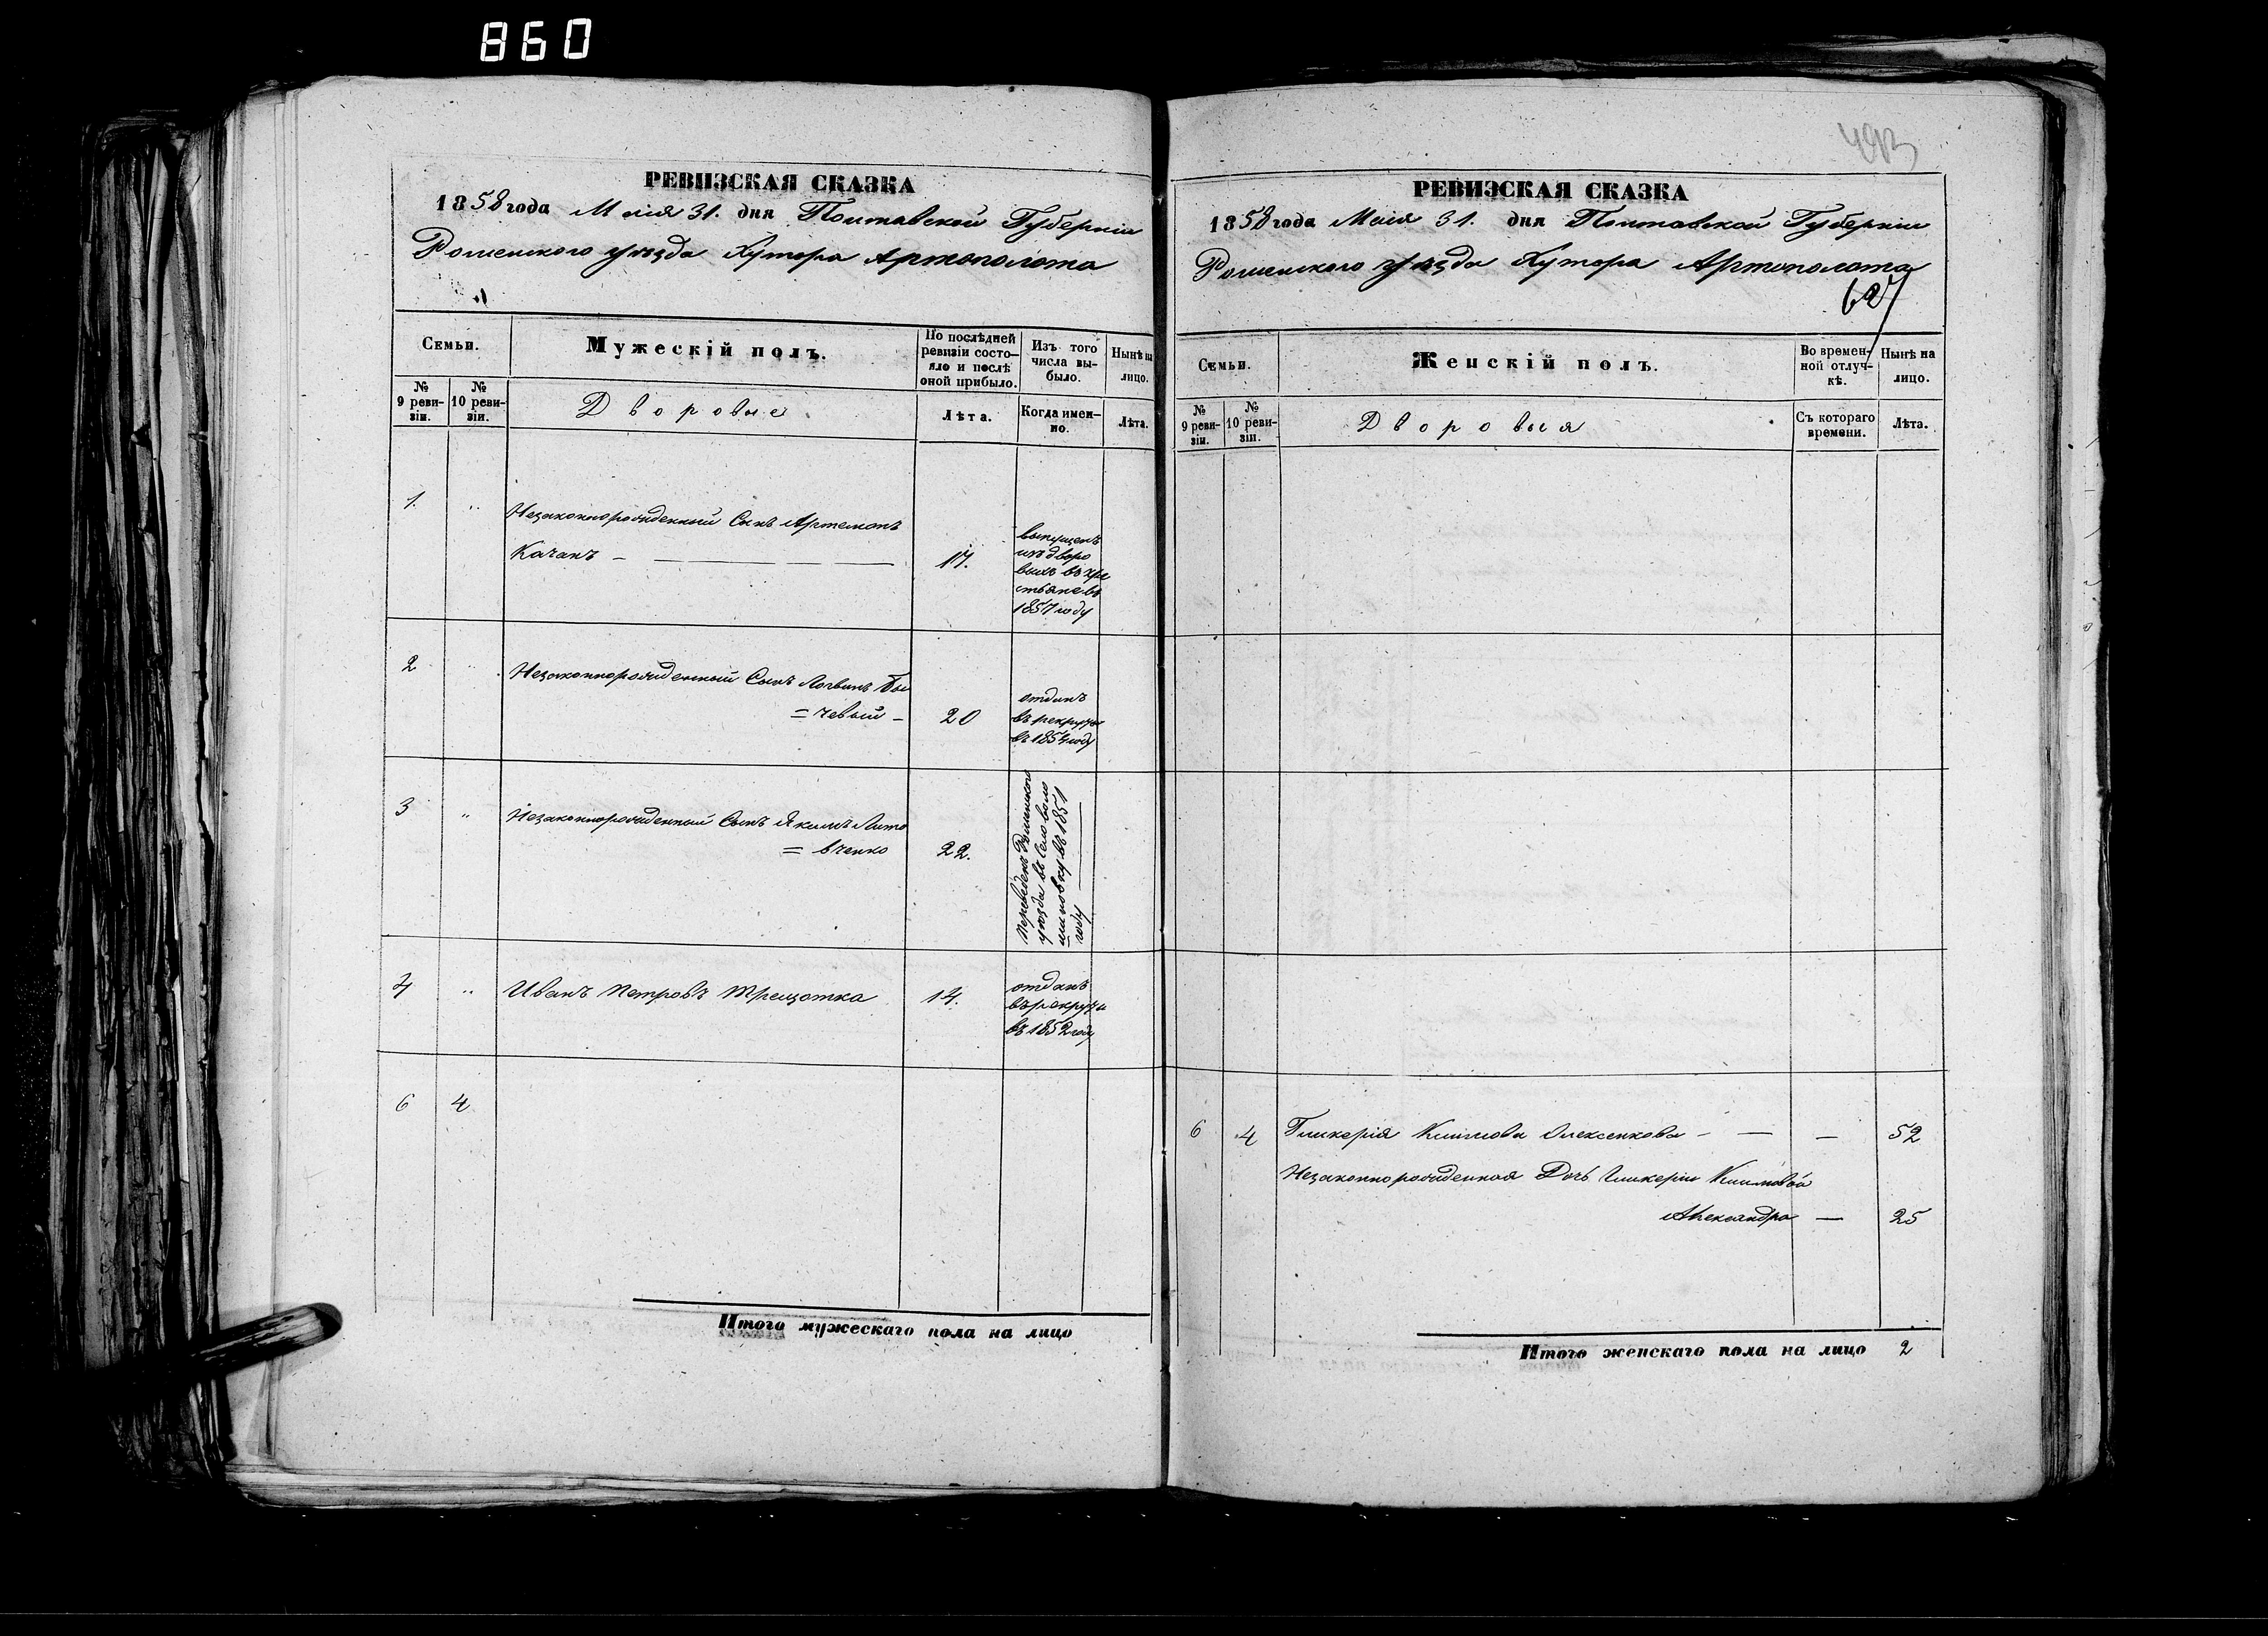 860
РЕВИЗСКАЯ СКАЗКА
1858 года Маія 31. дня Полтавской Губерніи
Роменского уезда Хутора Артополота
Семьи.
Мужескій полъ.
По послѣдней ревизіи состояло и послѣ оной прибыло.
Изъ того числа выбыло.
Нынѣ на лицо.
№ 9 ревизіи.
№ 10 ревизіи.
Дворовые
Лѣта.
Когда именно.
Лѣта.
1. " Незаконнорожденный Сынъ Артемонъ
Качанъ — 17.
выпущенъ
изъ дворо
выхъ въ кре
стьяне въ
1857 году
2 " Незаконнорожденный Сынъ Логвинъ Бы
= чевый — 20
отданъ
въ рекруты
въ 1854 году
3 " Незаконнорожденный Сынъ Якимъ Лито
= вченко 22.
переведенъ
уезда въ Село Воло
шиновку въ 1851
году
4 " Иванъ Петровъ Трещотка 14.
отданъ
въ рекруты
въ 1852 году
6 4
Итого мужескаго пола на лицо
493
РЕВИЗСКАЯ СКАЗКА
1858 года Маія 31. дня Полтавской Губерніи
Роменского уезда Хутора Артополота
627
Семьи.
Женскій полъ.
Во временной отлучкѣ.
Нынѣ на лицо.
№ 9 ревизіи.
№ 10 ревизіи.
Дворовыя
Съ котораго времени.
Лѣта.
6 4 Гликерія Климова Олексенкова — — — 52
Незаконнорожденная Дочь Гликеріи Климовой
Александра — 25
Итого женскаго пола на лицо 2